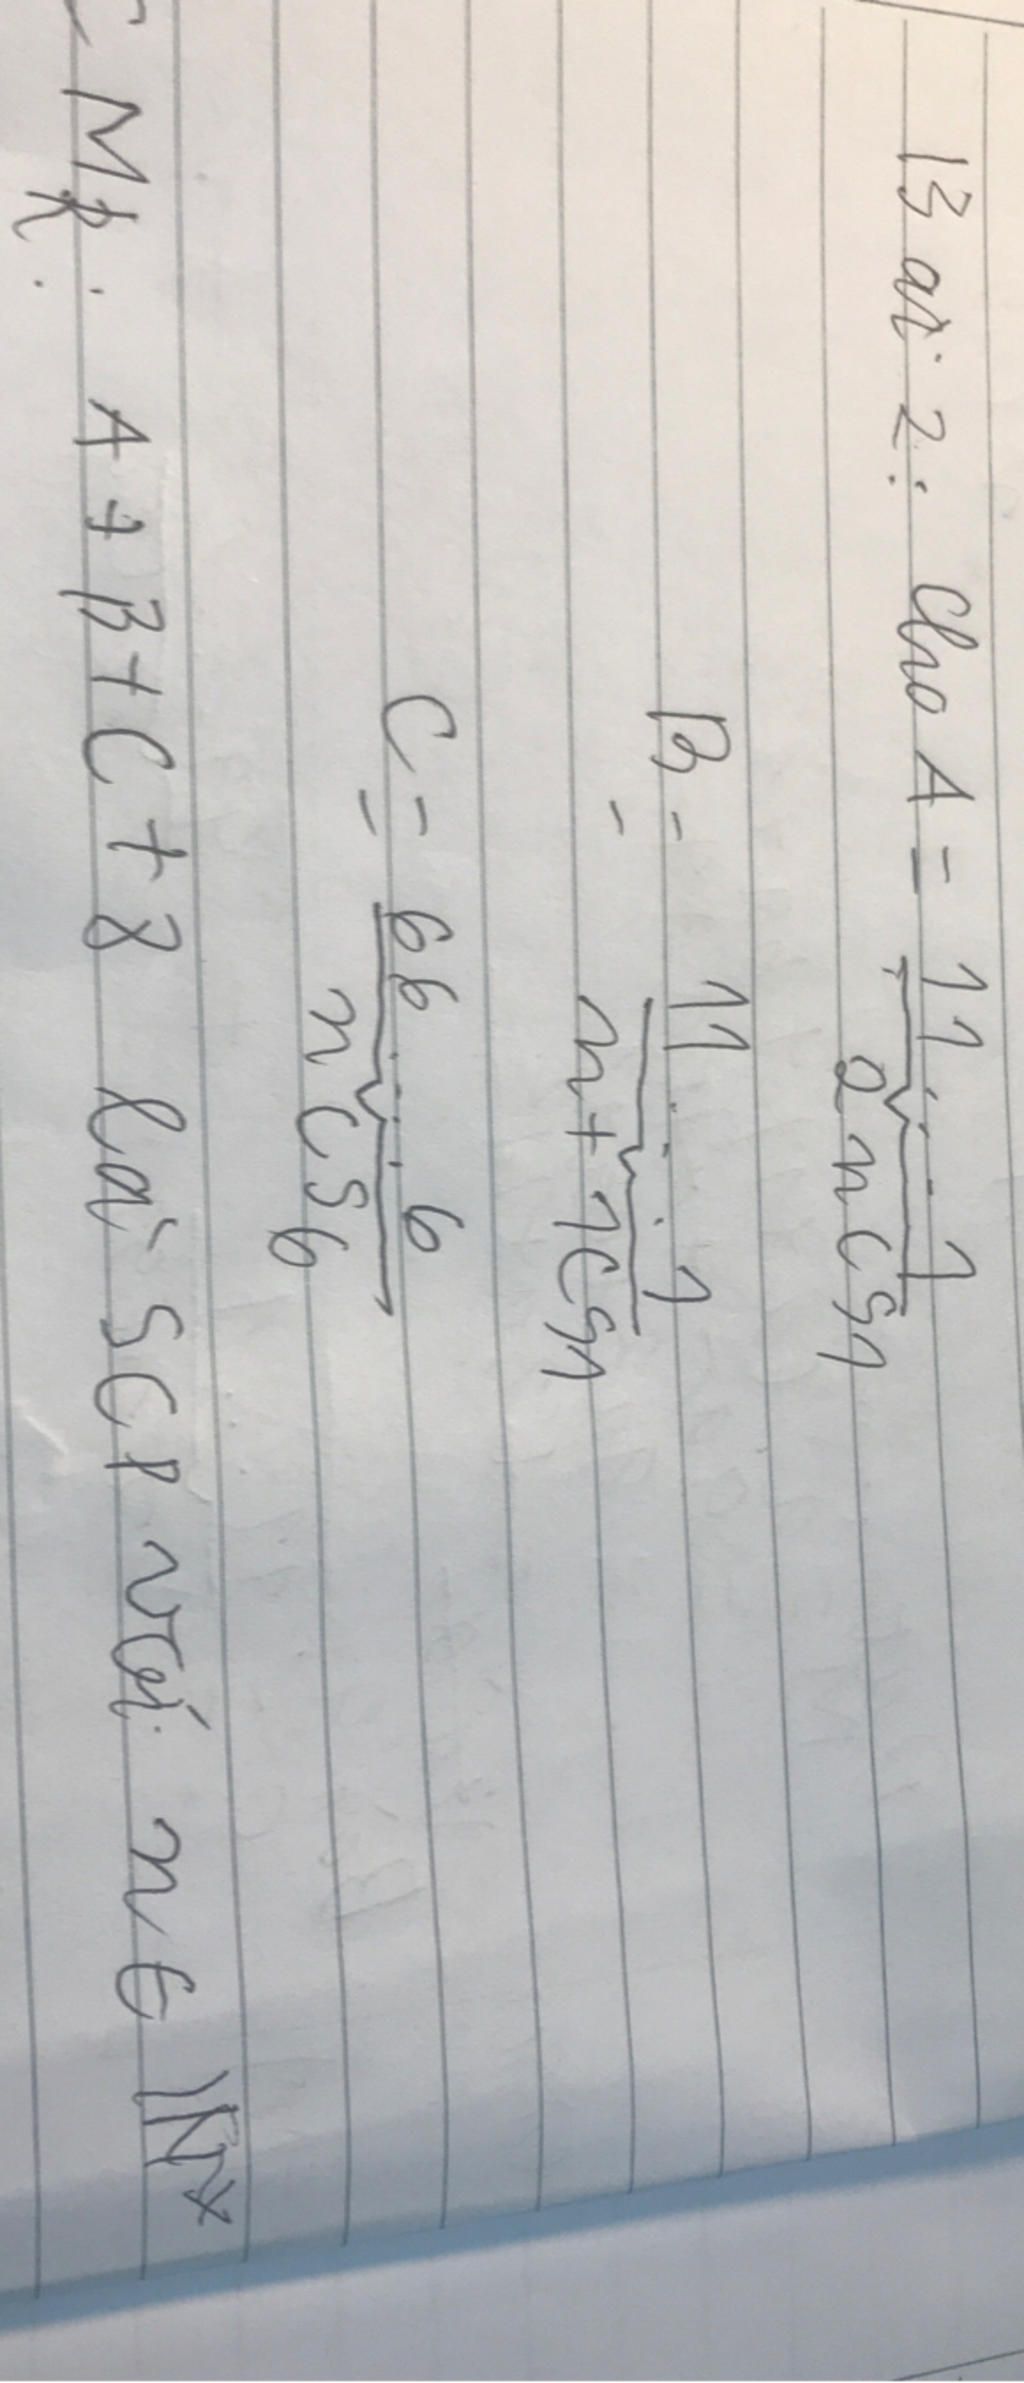 Bài 2: Cho A = 11...1
2n CS 1
B = 11...1
n+1 CS 1
C = 66...6
n CS 6
CMR: A + B + C + 8 là SCP với n ∈ ℕ*